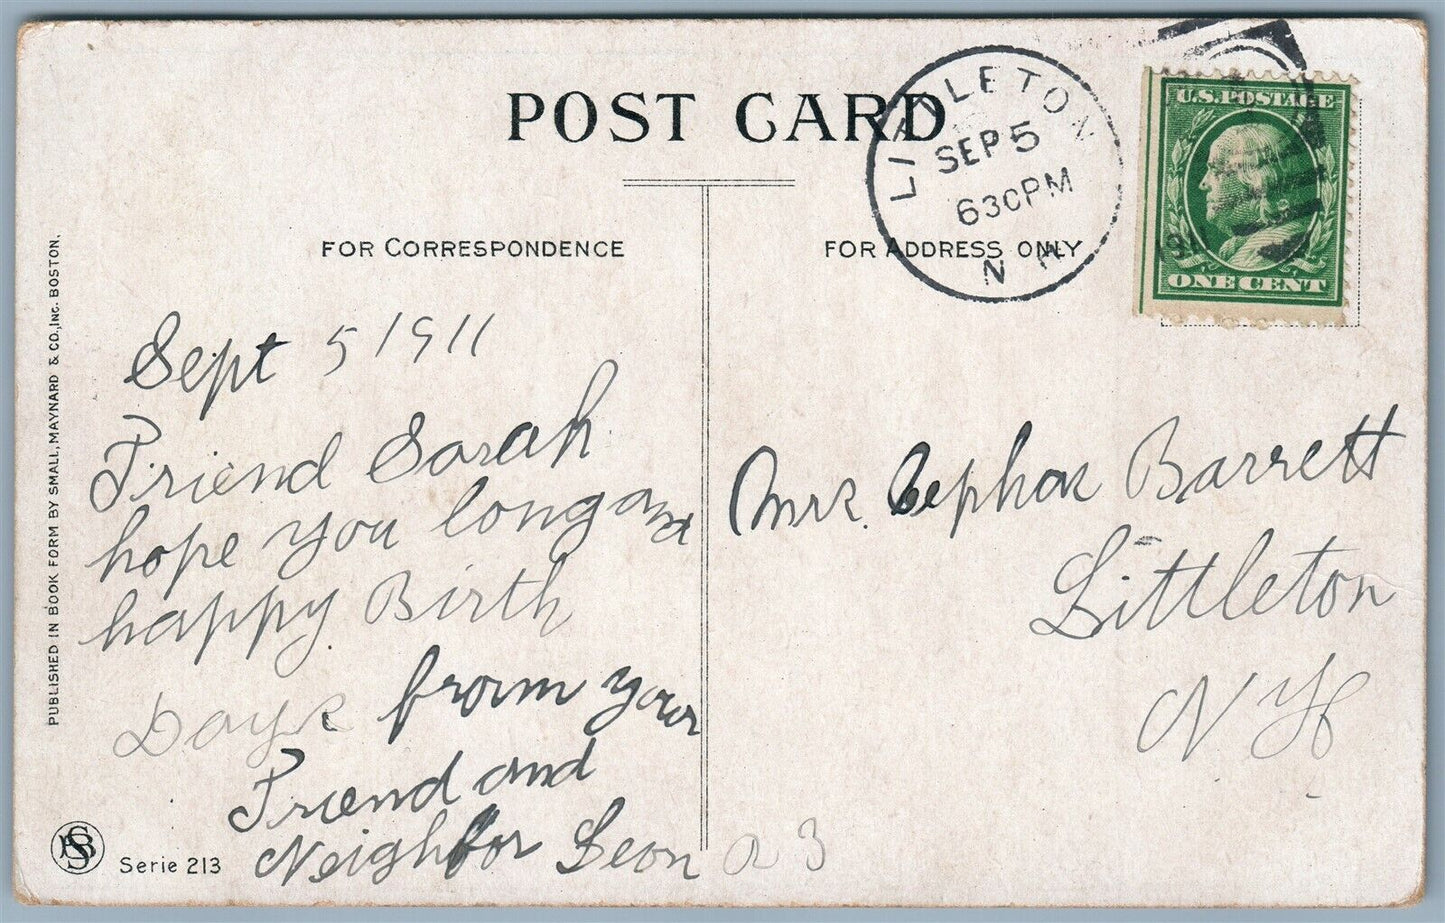 POST CARD
FOR CORRESPONDENCE
FOR ADDRESS ONLY
LITTLETON
SEP 5
630PM
N H
191
U.S. POSTAGE
ONE CENT
Sept 5 1911
Friend Sarah
hope you long and
happy Birth
Days from your
Friend and
Neighbor Leon
Mrs. Cephas Barrett
Littleton
N H
23
PUBLISHED IN BOOK FORM BY SMALL, MAYNARD & CO., INC. BOSTON.
Serie 213